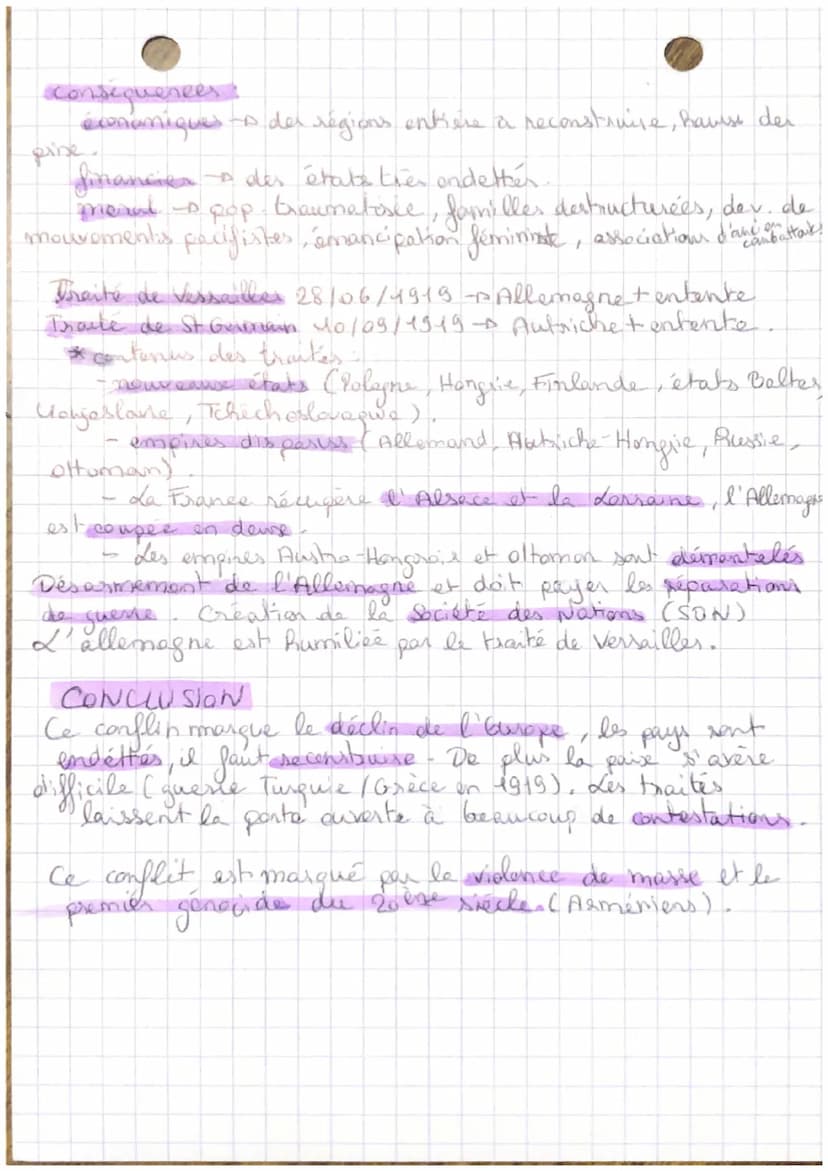 conséquences :
économiques → des régions entière a reconstruire, hausse des
prix.
financier → des états très endettés.
moral → pop. traumatisée, familles destructurées, dev. de
mouvements pacifistes, émancipation féministe, associations d'anciens combattants
Traité de Versailles 28/06/1919 → Allemagne + entente
Traité de St Germain 10/09/1919 → Autriche + entente.
* contenus des traités :
- nouveaux états (Pologne, Hongrie, Finlande, états Baltes,
Yougoslavie, Tchéchoslovaquie).
- empires disparus (Allemand, Autriche-Hongrie, Russie,
ottoman).
- La France récupère l'Alsace et la Lorraine, l'Allemagne
est coupée en deux.
- Les empires Austro-Hongrois et ottoman sont démantelés
Désarmement de l'Allemagne et doit payer les réparations
de guerre. Création de la Société des Nations (SDN)
L'allemagne est humiliée par le traité de Versailles.
CONCLUSION
Ce conflit marque le déclin de l'Europe, les pays sont
endéttés, il faut reconstruire. De plus la paix s'avère
difficile (guerre Turquie/Grèce en 1919). Les traités
laissent la porte ouverte à beaucoup de contestations.
Ce conflit est marqué par la violence de masse et le
premier génocide du 20ème siècle (Arméniens).